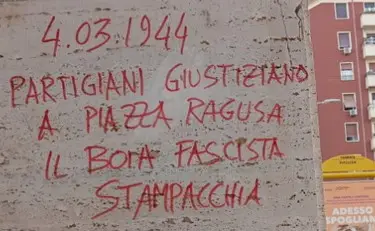 4.03.1944
PARTIGIANI GIUSTIZIANO
A PIAZZA RAGUSA
IL BOIA FASCISTA
STAMPACCHIA
ADESSO
SPOGLIAM